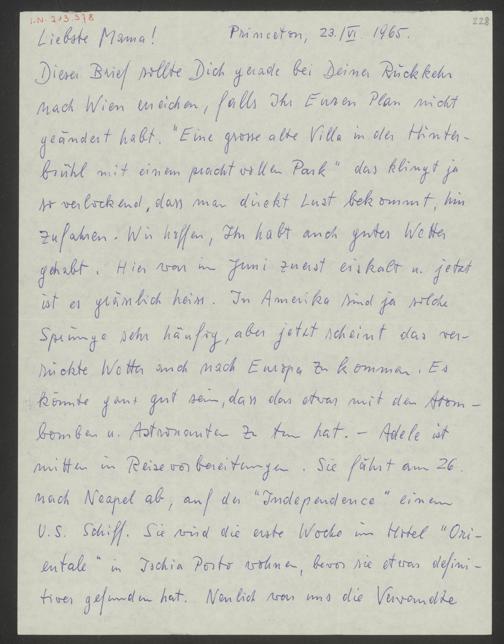 I.N. 213.378
228
Liebste Mama! Princeton, 23./VI. 1965.
Dieser Brief sollte Dich gerade bei Deiner Rückkehr
nach Wien erreichen, falls Ihr Euren Plan nicht
geändert habt. "Eine grosse alte Villa in der Hinter-
brühl mit einem prachtvollen Park" das klingt ja
so verlockend, dass man direkt Lust bekommt, hin
zufahren. Wir hoffen, Ihr habt auch gutes Wetter
gehabt. Hier war im Juni zuerst eiskalt u. jetzt
ist es grässlich heiss. In Amerika sind ja solche
Sprünge sehr häufig, aber jetzt scheint das ver-
rückte Wetter auch nach Europa zu kommen. Es
könnte ganz gut sein, dass das etwas mit den Atom-
bomben u. Astronauten zu tun hat. – Adele ist
mitten in Reisevorbereitungen. Sie fährt am 26.
nach Neapel ab, auf der "Independence" einem
U.S. Schiff. Sie wird die erste Woche im Hotel "Ori-
entale" in Ischia Porto wohnen, bevor sie etwas defini-
tives gefunden hat. Neulich war uns die Verwandte